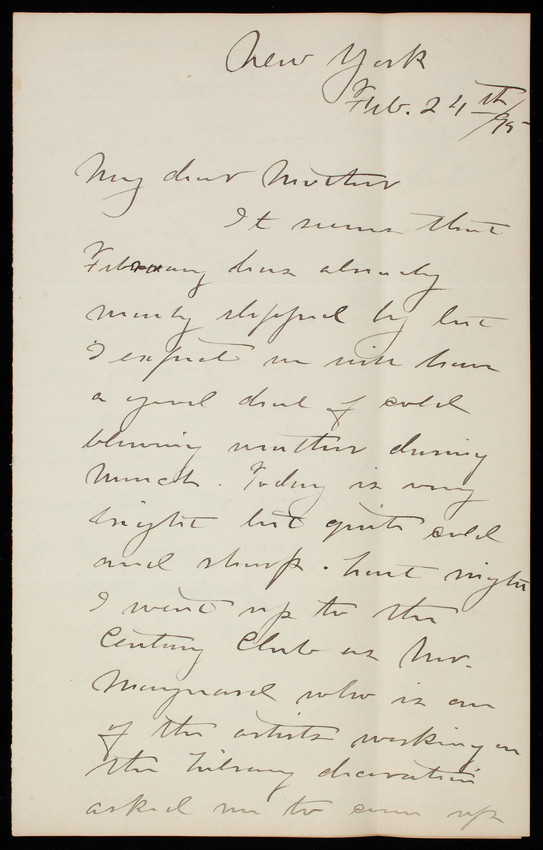 New York
Feb. 24th/95
My dear Mother
It seems that
February has already
nearly slipped by but
I expect we will have
a good deal of cold
blowing weather during
March. Today is very
bright but quite cold
and sharp. Last night
I went up to the
Century Club as Mr.
Maynard who is one
of the artists working on
the Library decoration
asked me to come up